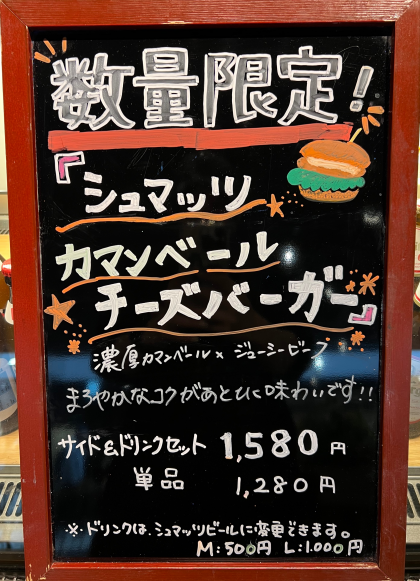 数量限定!
『シュマッツ
カマンベール
チーズバーガー』
濃厚カマンベール×ジューシービーフ
まろやかなコクがあとひく味わいです!!
サイド&ドリンクセット 1,580円
単品 1,280円
※ドリンクは、シュマッツビールに変更できます。
M:500円 L:1.000円